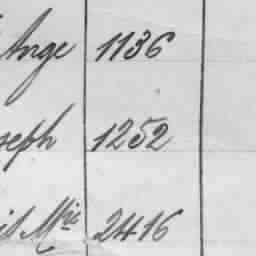 Ange 1136
seph 1252
is Mie 2416